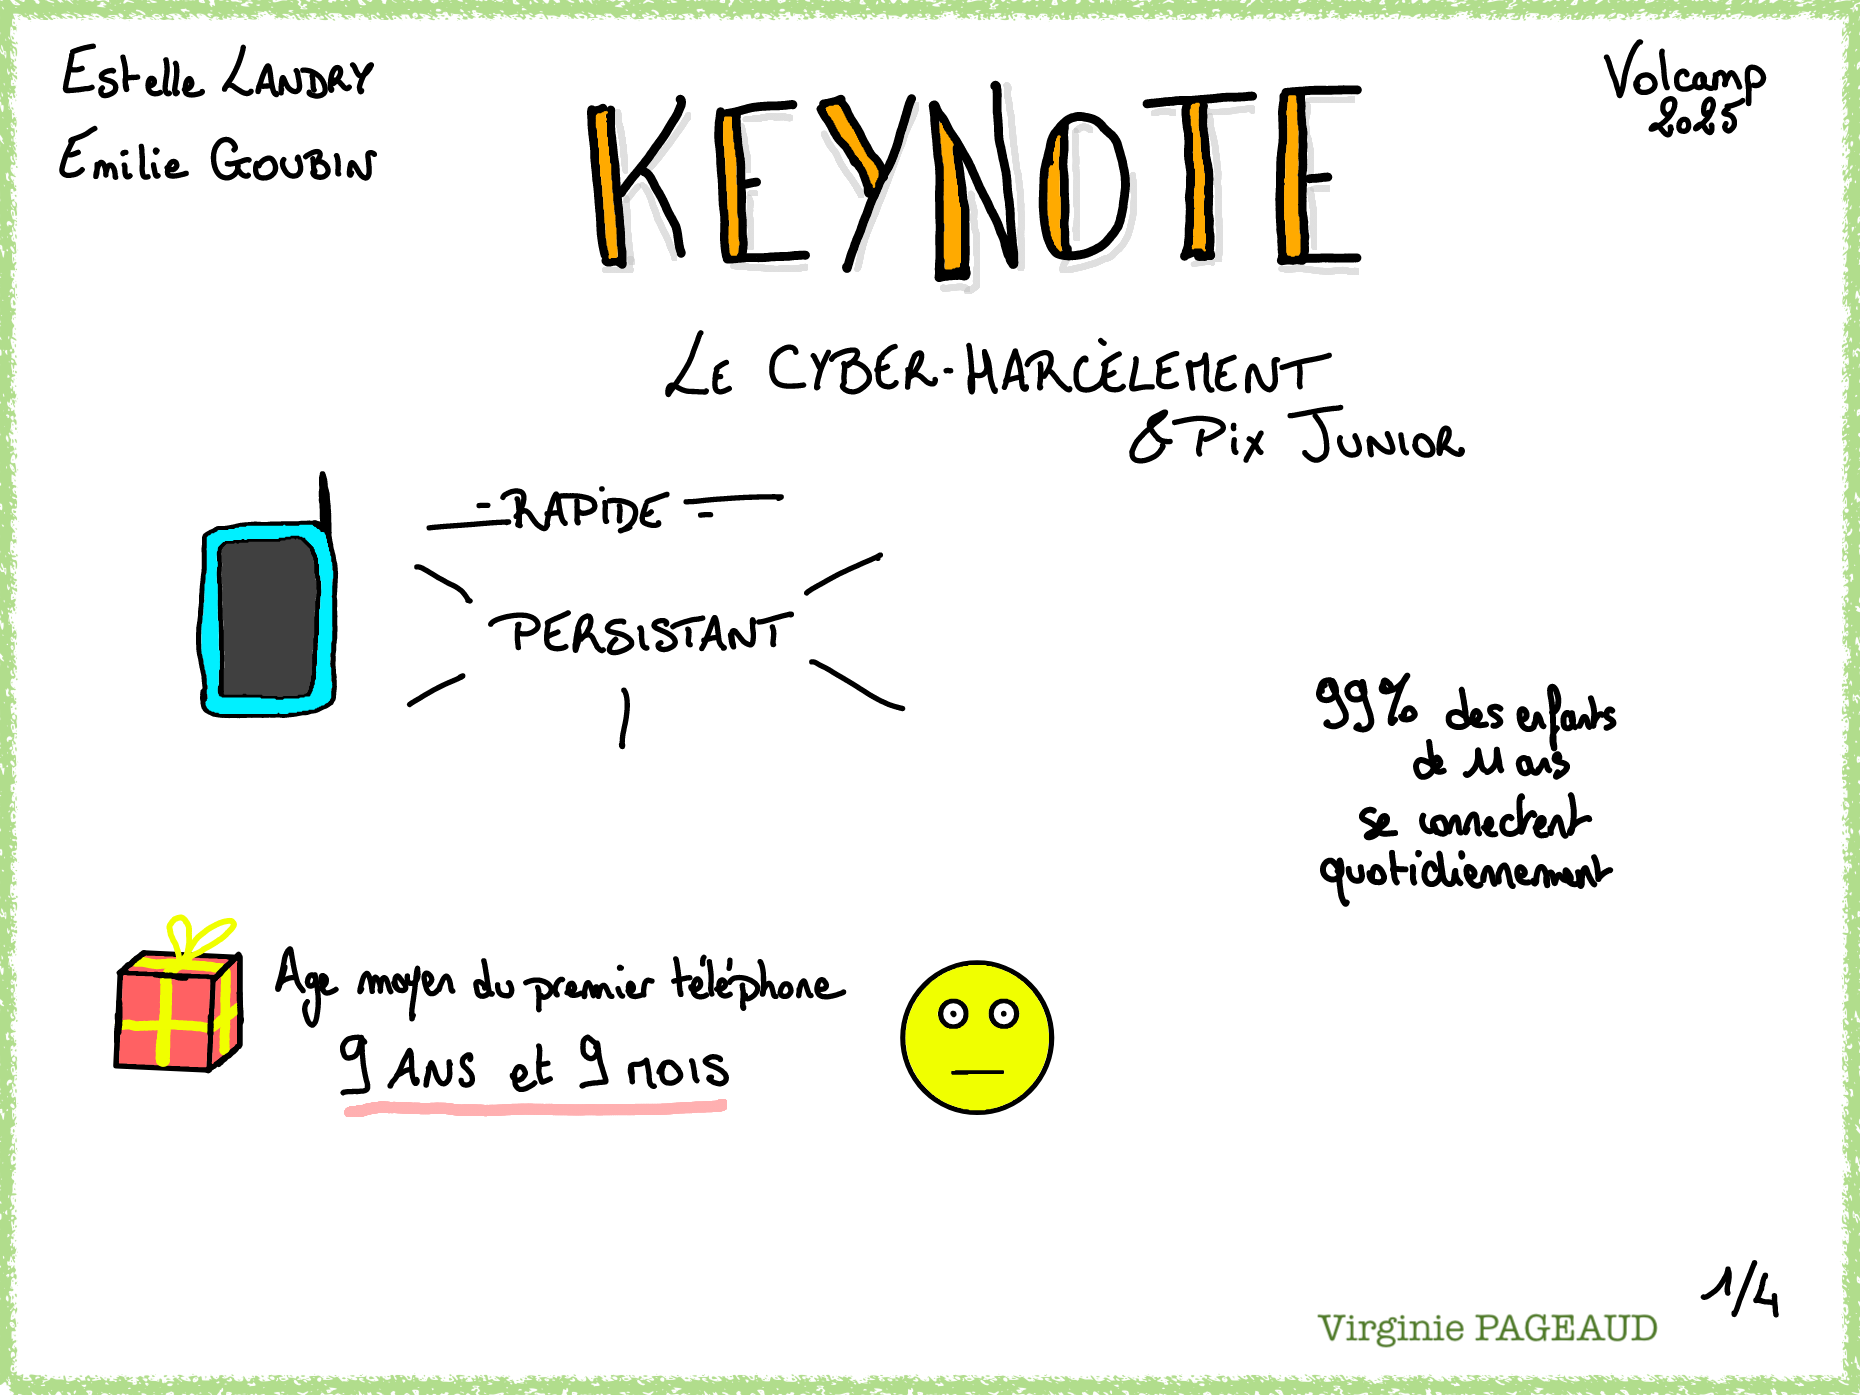 Estelle LANDRY
Emilie GOUBIN
KEYNOTE
Volcamp
2025
LE CYBER-HARCÈLEMENT
& Pix JUNIOR
- RAPIDE -
PERSISTANT
99% des enfants
de 11 ans
se connectent
quotidiennement
Age moyen du premier téléphone
9 ANS et 9 MOIS
1/4
Virginie PAGEAUD